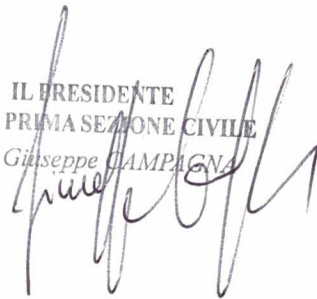 IL PRESIDENTE
PRIMA SEZIONE CIVILE
Giuseppe CAMPAGNA